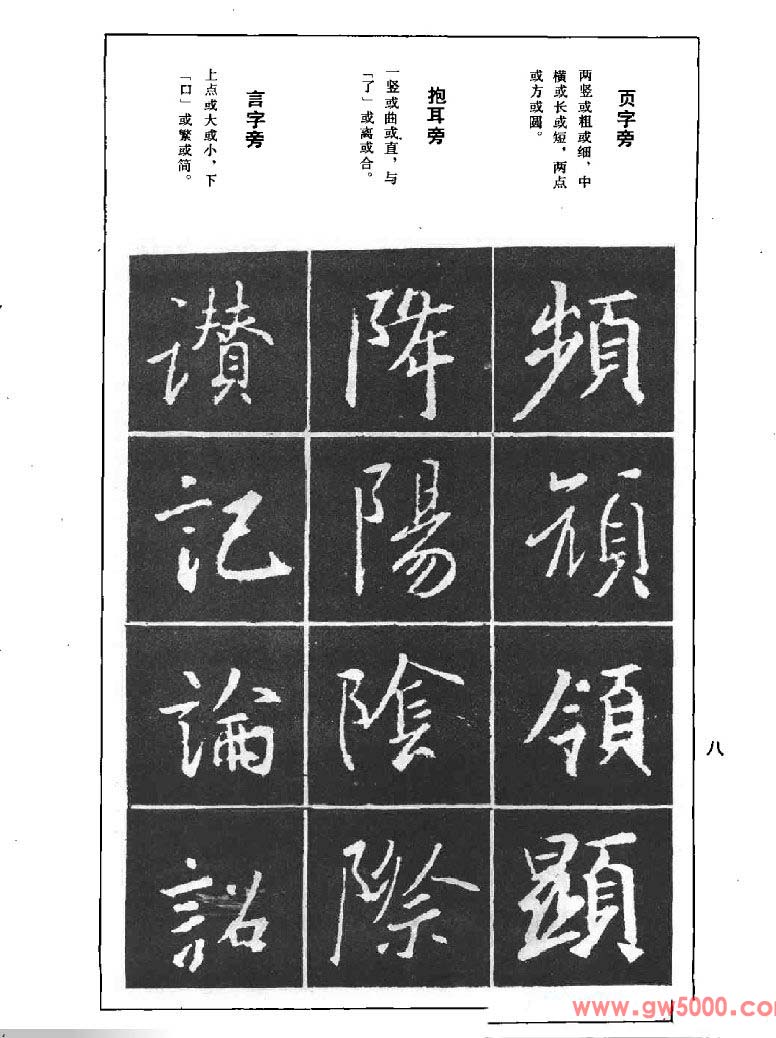 页字旁
两竖或粗或细，中
横或长或短，两点
或方或圆。
频
顽
领
顯
抱耳旁
一竖或曲或直，与
「了」或离或合。
降
陽
陰
際
言字旁
上点或大或小，下
「口」或繁或简。
讃
記
論
詔
八
www.gw5000.com